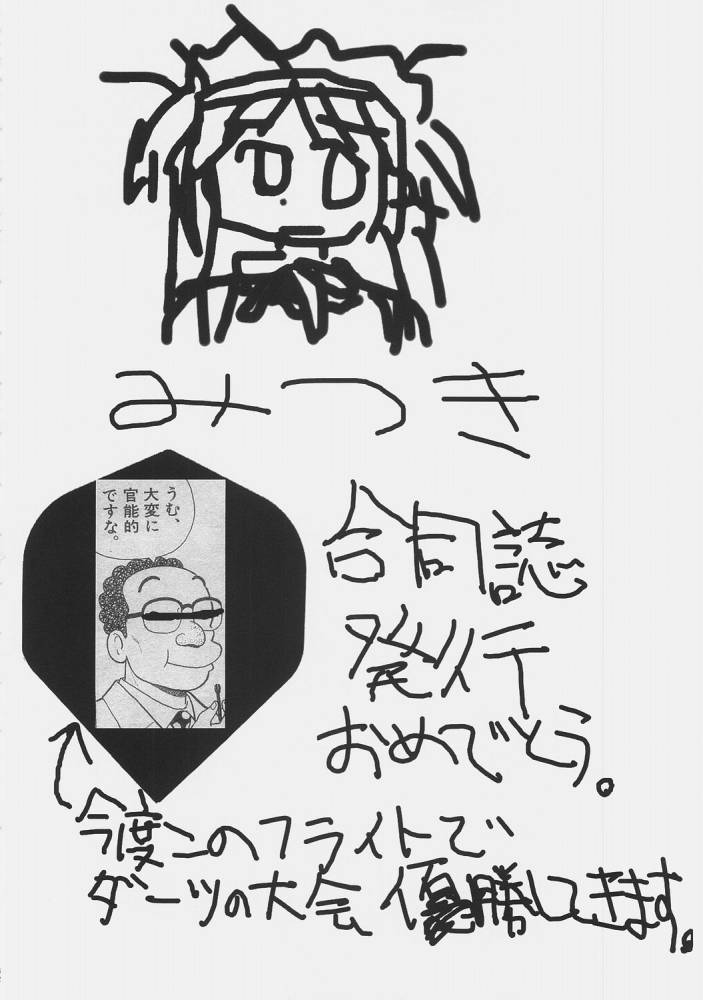 みつき
うむ、
大変に
官能的
ですな。
合同誌
発行
おめでとう。
今度このフライトで
ダーツの大会優勝してきます。